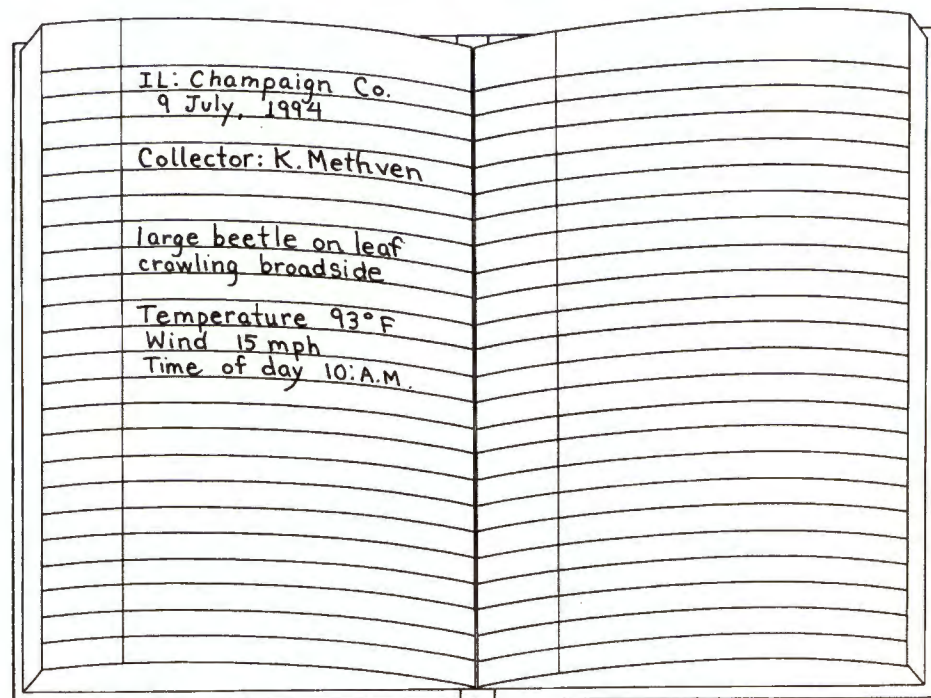 IL: Champaign Co.
9 July, 1994
Collector: K. Methven
large beetle on leaf
crawling broadside
Temperature 93°F
Wind 15 mph
Time of day 10:A.M.